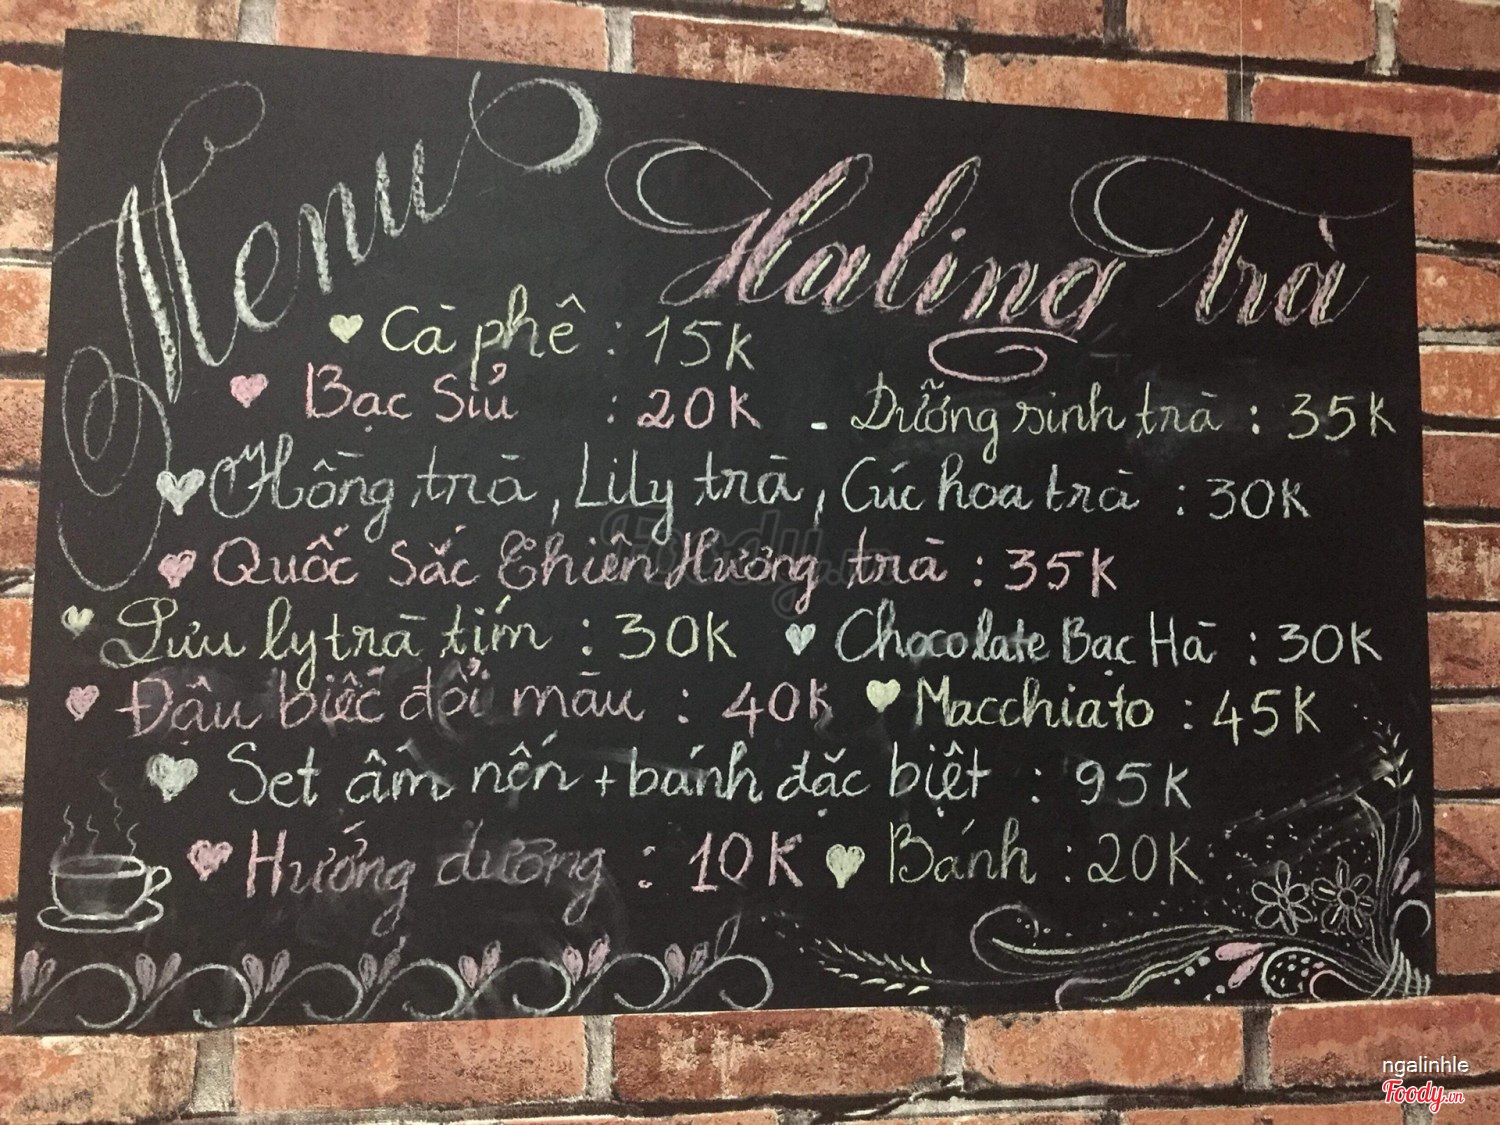 Menu
Haling trà
Cà phê : 15K
Bạc Sỉu : 20K - Dưỡng sinh trà : 35K
Hồng trà, Lily trà, Cúc hoa trà : 30K
Quốc Sắc Thiên Hương trà : 35K
Lưu ly trà tím : 30K Chocolate Bạc Hà : 30K
Đậu biếc đổi màu : 40K Macchiato : 45K
Set ấm nến + bánh đặc biệt : 95K
Hướng dương : 10K Bánh : 20K
Foody.vn
ngalinhle
Foody.vn